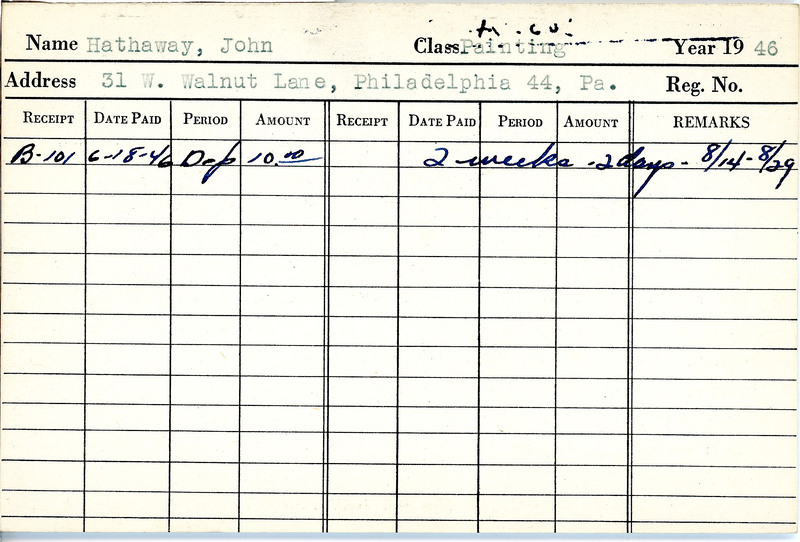 Name Hathaway, John Class Painting Year 19 46
Address 31 W. Walnut Lane, Philadelphia 44, Pa. Reg. No.
RECEIPT DATE PAID PERIOD AMOUNT RECEIPT DATE PAID PERIOD AMOUNT REMARKS
B-101 6-18-46 Dep 10.00 2 weeks - 2 days - 8/14 - 8/29